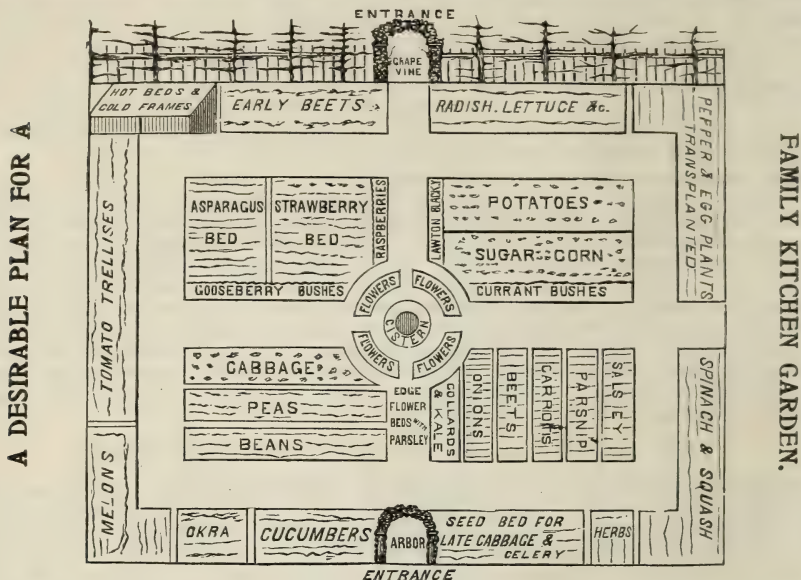 A DESIRABLE PLAN FOR A
FAMILY KITCHEN GARDEN.
ENTRANCE
GRAPE
VINE
HOT BEDS &
COLD FRAMES
EARLY BEETS
RADISH. LETTUCE &c.
PEPPER & EGG PLANTS
TRANSPLANTED
TOMATO TRELLISES
ASPARAGUS
BED
STRAWBERRY
BED
RASPBERRIES
LAWTON BLACKY
POTATOES
SUGAR CORN
GOOSEBERRY BUSHES
CURRANT BUSHES
FLOWERS
FLOWERS
CISTERN
FLOWERS
FLOWERS
CABBAGE
PEAS
BEANS
EDGE
FLOWER
BEDS WITH
PARSLEY
COLLARDS
& KALE
ONIONS
BEETS
CARROTS
PARSNIP
SALSIFY
SPINACH & SQUASH
MELONS
OKRA
CUCUMBERS
ARBOR
SEED BED FOR
LATE CABBAGE &
CELERY
HERBS
ENTRANCE